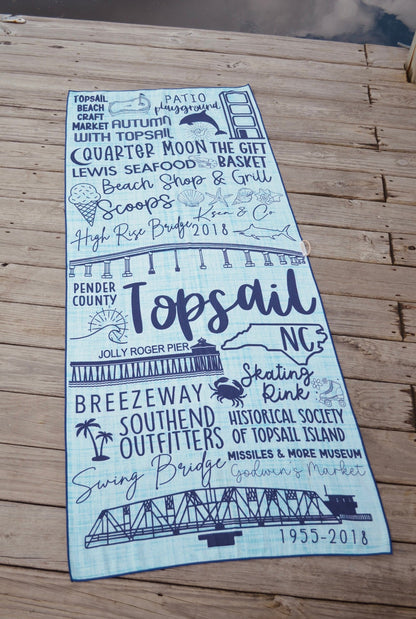 TOPSAIL
BEACH
CRAFT
MARKET
PATIO
playground
AUTUMN
WITH TOPSAIL
QUARTER MOON
THE GIFT
BASKET
LEWIS SEAFOOD
Beach Shop & Grill
Scoops
High Rise Bridge 2018
PENDER
COUNTY
Topsail
NC
JOLLY ROGER PIER
Skating
Rink
BREEZEWAY
SOUTHEND
OUTFITTERS
HISTORICAL SOCIETY
OF TOPSAIL ISLAND
MISSILES & MORE MUSEUM
Swing Bridge
Godwin's Market
1955-2018